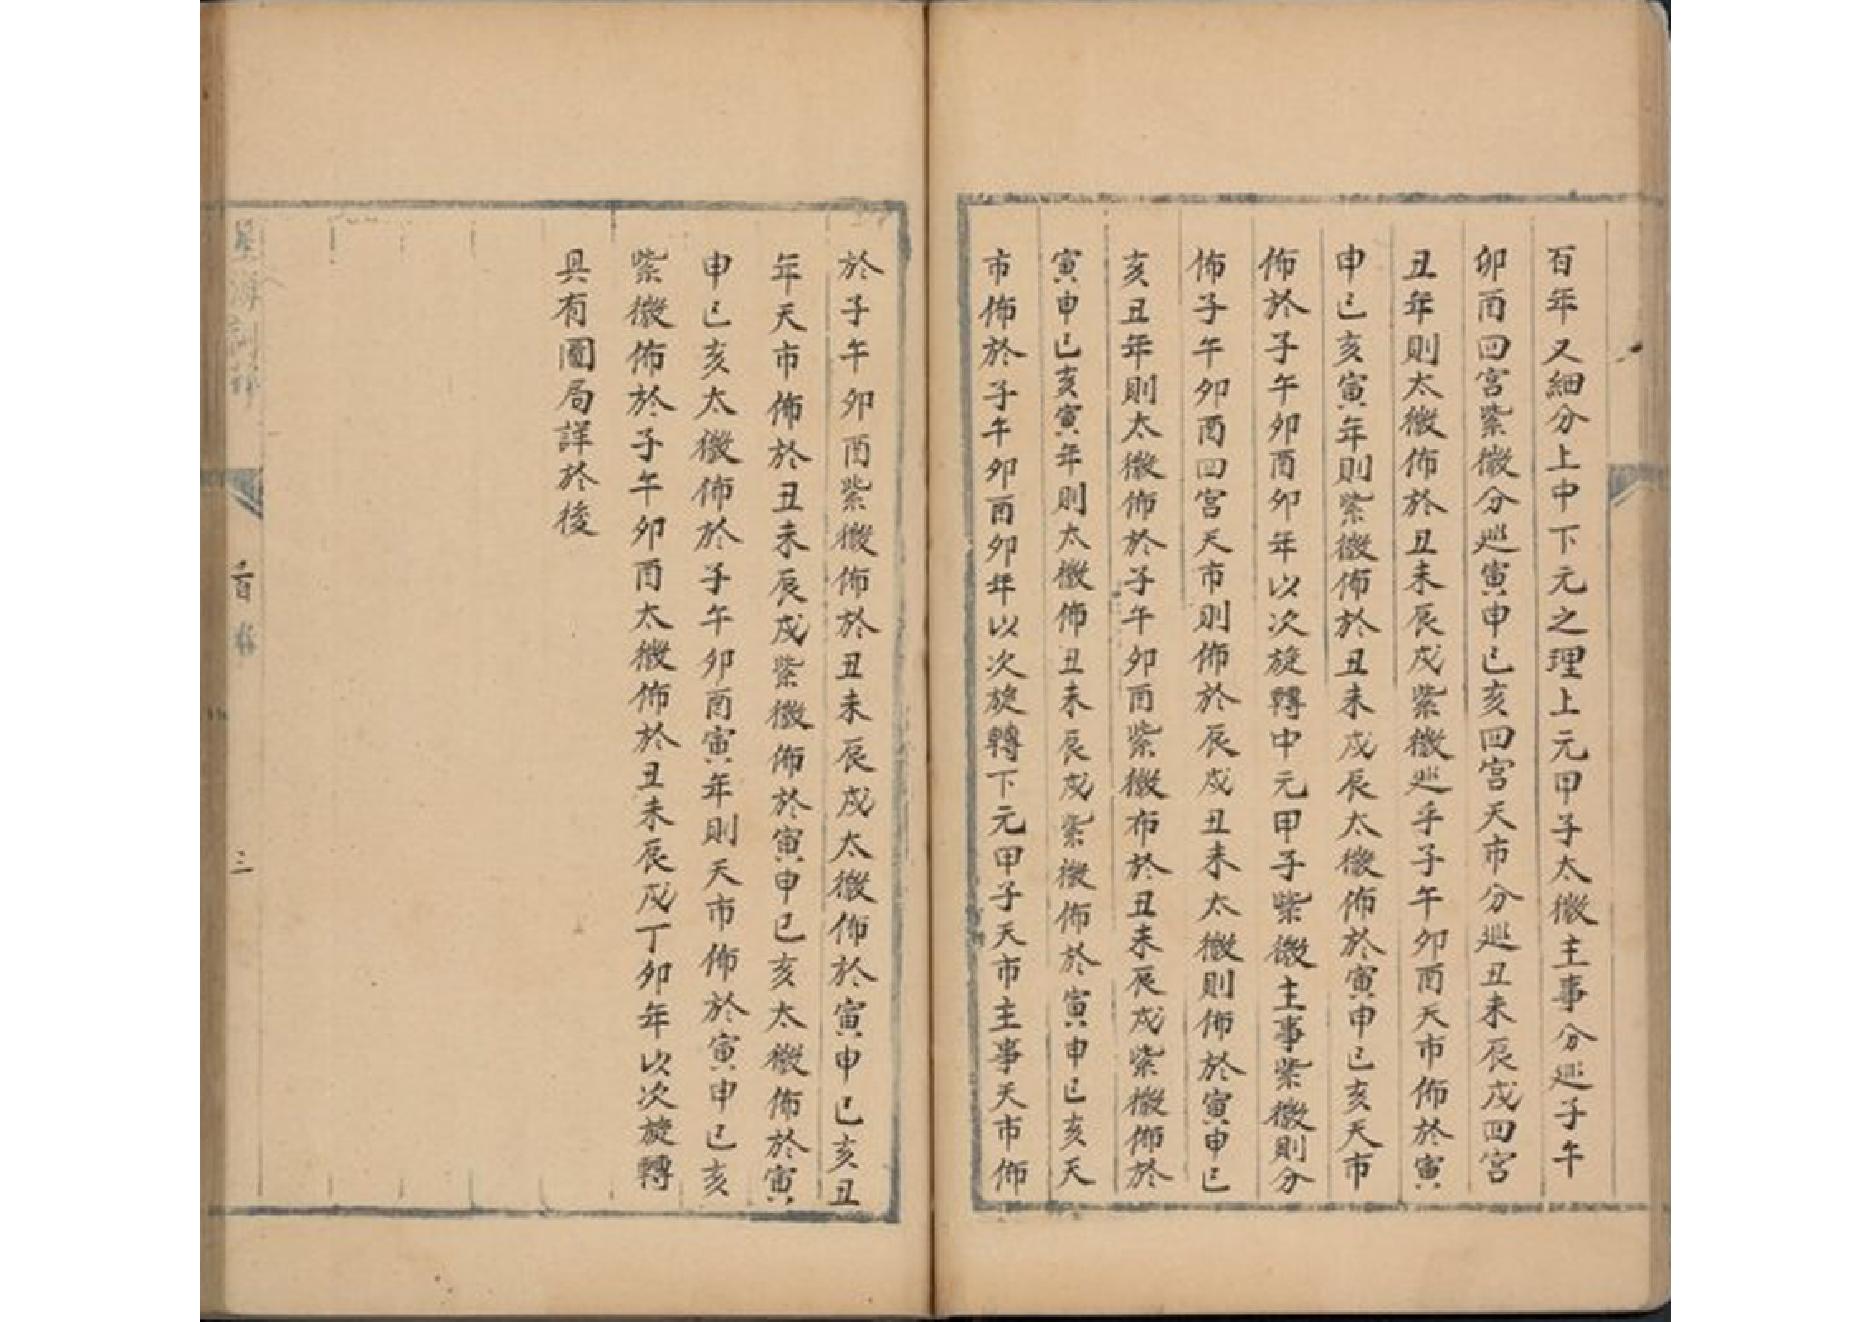 百年又細分上中下元之理上元甲子太微主事分巡子午
卯酉四宮紫微分巡寅申巳亥四宮天市分巡丑未辰戌四宮
丑年則太微佈於丑未辰戌紫微巡乎子午卯酉天市佈於寅
申巳亥寅年則紫微佈於丑未戌辰太微佈於寅申巳亥天市
佈於子午卯酉卯年以次旋轉中元甲子紫微主事紫微則分
佈子午卯酉四宮天市則佈於辰戌丑未太微則佈於寅申巳
亥丑年則太微佈於子午卯酉紫微布於丑未辰戌紫微佈於
寅申巳亥寅年則太微佈丑未辰戌紫微佈於寅申巳亥天
市佈於子午卯酉卯年以次旋轉下元甲子天市主事天市佈
於子午卯酉紫微佈於丑未辰戌太微佈於寅申巳亥丑
年天市佈於丑未辰戌紫微佈於寅申巳亥太微佈於寅
申巳亥太微佈於子午卯酉寅年則天市佈於寅申巳亥
紫微佈於子午卯酉太微佈於丑未辰戌丁卯年以次旋轉
具有圖局詳於後
首卷
三